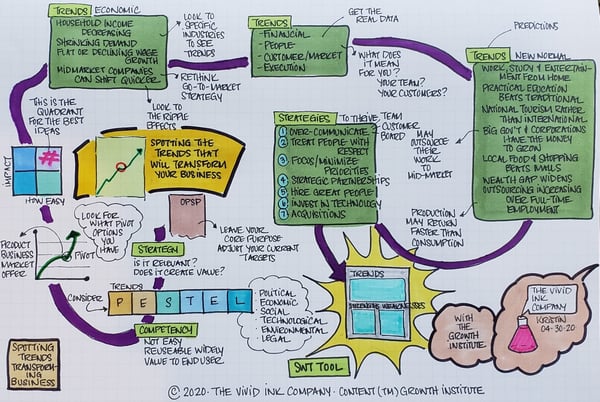 TRENDS ECONOMIC
HOUSEHOLD INCOME
DECREASING
SHRINKING DEMAND
FLAT OR DECLINING WAGE
GROWTH
MIDMARKET COMPANIES
CAN SHIFT QUICKER
LOOK TO
SPECIFIC
INDUSTRIES
TO SEE
TRENDS
RETHINK
GO-TO-MARKET
STRATEGY
LOOK TO
THE RIPPLE
EFFECTS
TRENDS
- FINANCIAL
- PEOPLE
- CUSTOMER/MARKET
- EXECUTION
GET THE
REAL DATA
WHAT DOES
IT MEAN
FOR YOU?
YOUR TEAM?
YOUR CUSTOMERS?
PREDICTIONS
TRENDS NEW NORMAL
WORK, STUDY & ENTERTAIN-
MENT FROM HOME
PRACTICAL EDUCATION
BEATS TRADITIONAL
NATIONAL TOURISM RATHER
THAN INTERNATIONAL
BIG GOV'T & CORPORATIONS
HAVE THE MONEY
TO GROW
LOCAL FOOD & SHOPPING
BEATS MALLS
WEALTH GAP WIDENS
OUTSOURCING INCREASING
OVER FULL-TIME
EMPLOYMENT
MAY
OUTSOURCE
THEIR
WORK
TO
MID-MARKET
PRODUCTION
MAY RETURN
FASTER THAN
CONSUMPTION
STRATEGIES TO THRIVE
TEAM
CUSTOMER
BOARD
1 OVER-COMMUNICATE
2 TREAT PEOPLE WITH
RESPECT
3 FOCUS/MINIMIZE
PRIORITIES
4 STRATEGIC PARTNERSHIPS
5 HIRE GREAT PEOPLE!
6 INVEST IN TECHNOLOGY
7 ACQUISITIONS
THIS IS THE
QUADRANT
FOR THE BEST
IDEAS
IMPACT
#
HOW EASY
SPOTTING THE
TRENDS THAT
WILL TRANSFORM
YOUR BUSINESS
OPSP
LEAVE YOUR
CORE PURPOSE
ADJUST YOUR CURRENT
TARGETS
LOOK FOR
WHAT PIVOT
OPTIONS
YOU
HAVE
PRODUCT
BUSINESS
MARKET
OFFER
PIVOT
STRATEGY
IS IT RELEVANT?
DOES IT CREATE VALUE?
CONSIDER
TRENDS
P E S T E L
- POLITICAL
- ECONOMIC
- SOCIAL
- TECHNOLOGICAL
- ENVIRONMENTAL
- LEGAL
COMPETENCY
NOT EASY
REUSEABLE WIDELY
VALUE TO END USER
TRENDS
STRENGTHS WEAKNESSES
SWT TOOL
WITH
THE GROWTH
INSTITUTE
THE VIVID
INK
COMPANY
KRISTIN
04-30-20
SPOTTING
TRENDS
TRANSFORM-
ING
BUSINESS
© 2020 · THE VIVID INK COMPANY · CONTENT (TM) GROWTH INSTITUTE